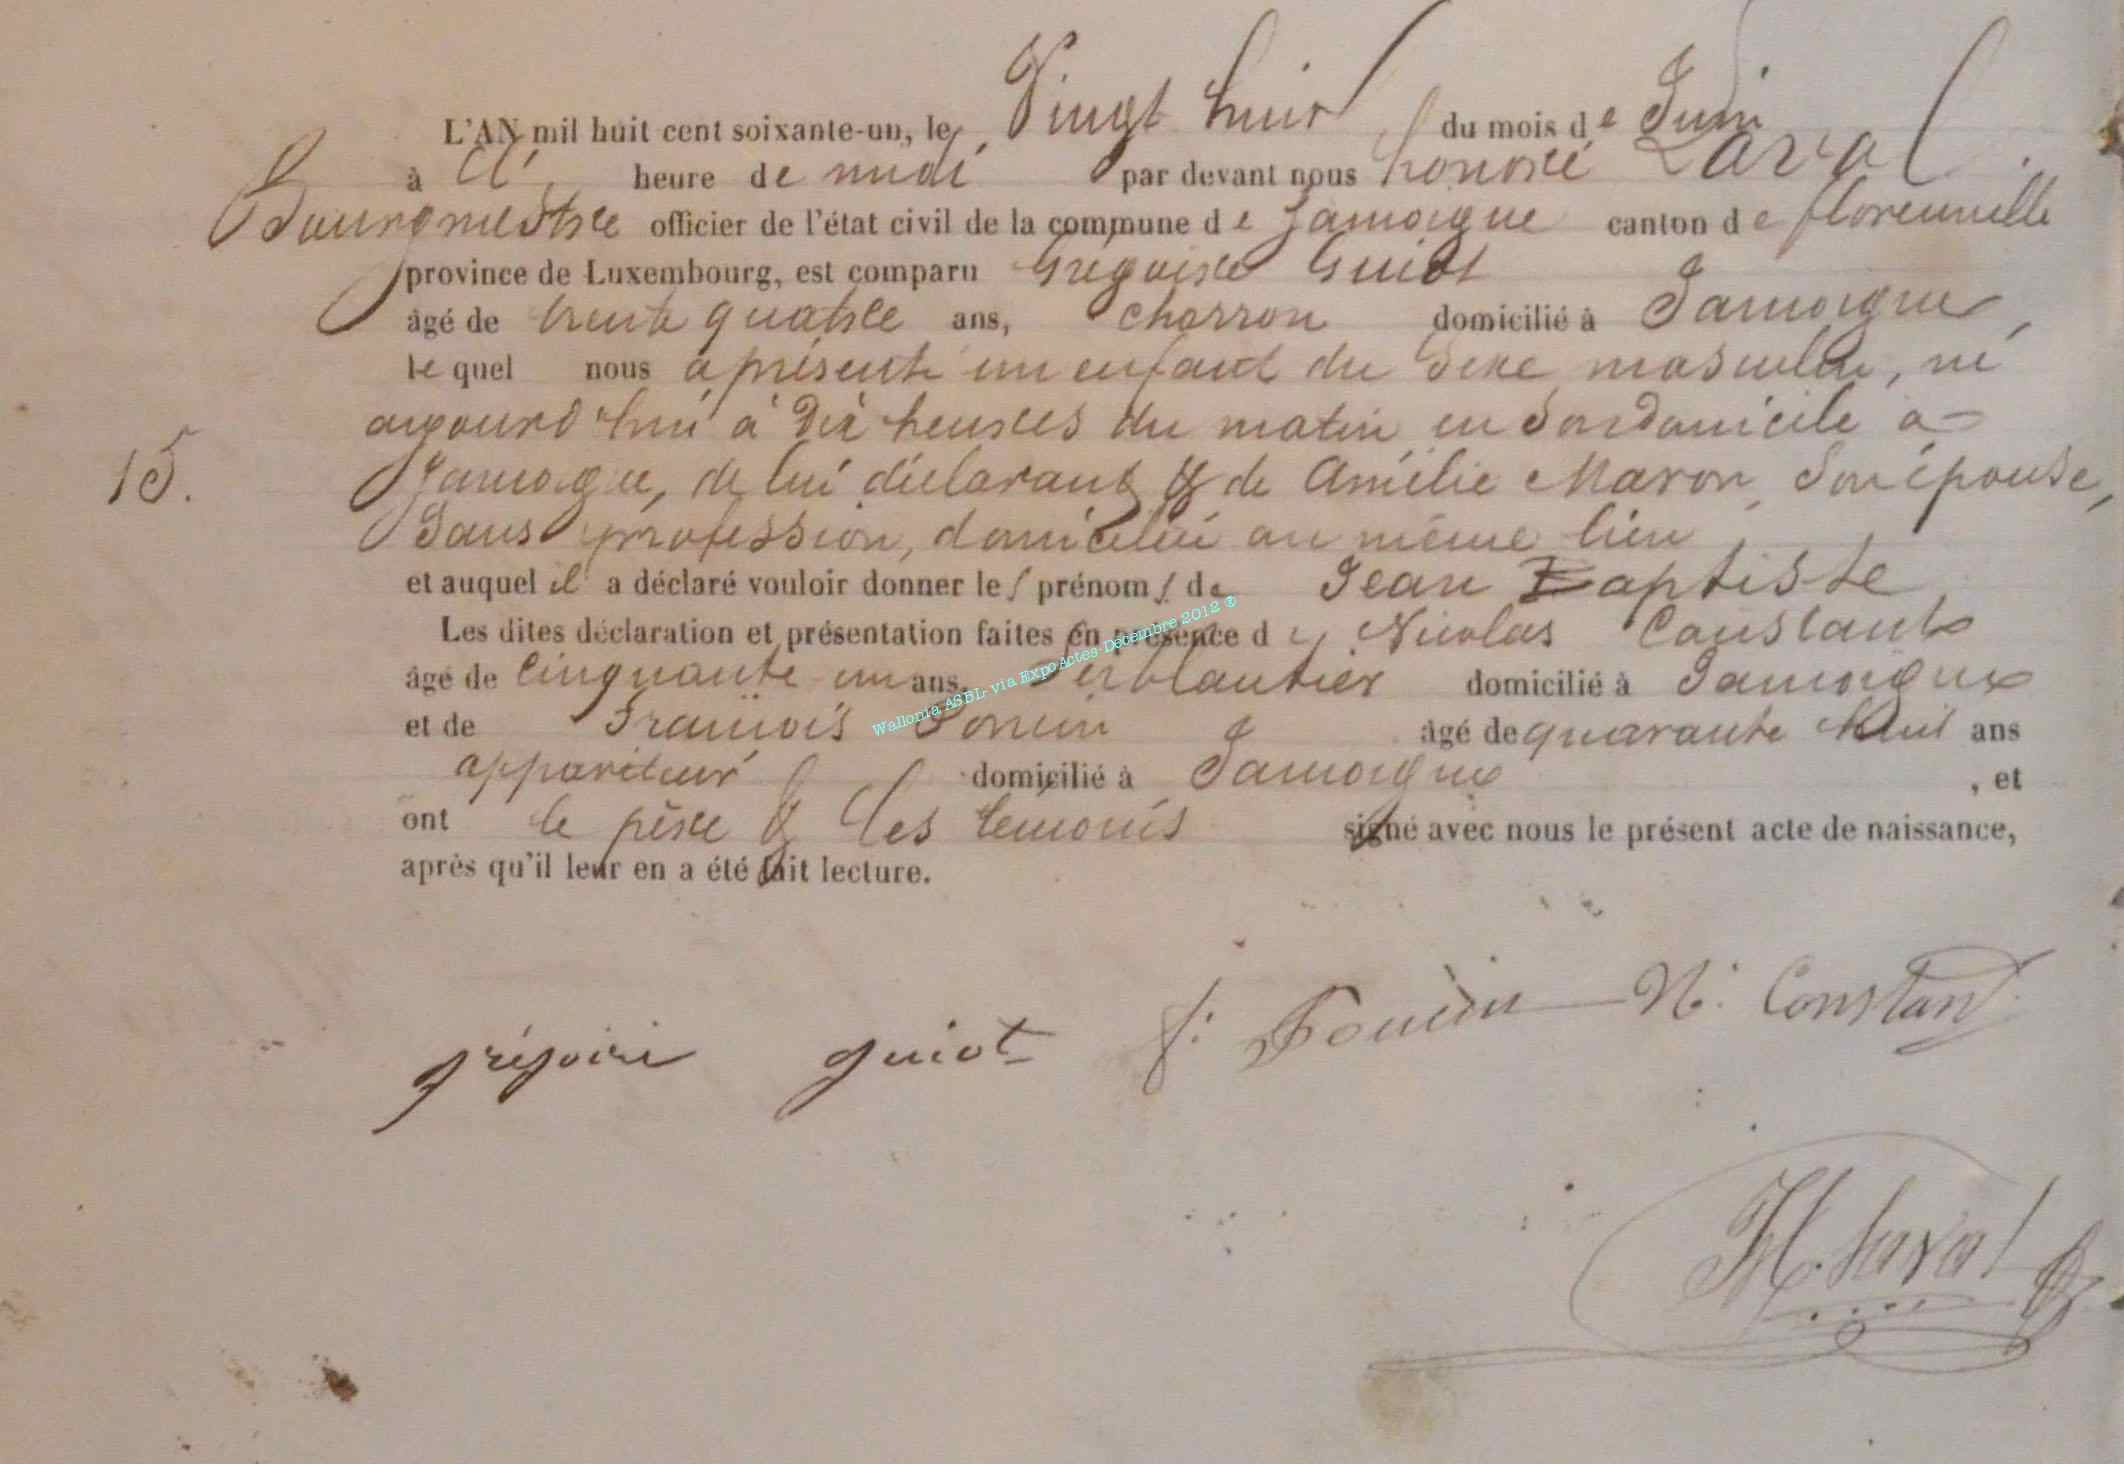 L'AN mil huit cent soixante-un, le Vingt huit du mois de Juin
à heure de midi par devant nous honoré Laval
Bourgmestre officier de l'état civil de la commune de Jamoigne canton de florenville
province de Luxembourg, est comparu Grégoire Guiot
âgé de trente quatre ans, charron domicilié à Jamoigne,
le quel nous a présenté un enfant du sexe masculin, né
aujourd'hui à dix heures du matin en son domicile à
15. Jamoigne, de lui déclarant & de Amélie Maron, son épouse,
sans profession, domicilié au même lieu
et auquel il a déclaré vouloir donner les prénoms de Jean Baptiste
Les dites déclaration et présentation faites en présence de Nicolas Constant
âgé de cinquante un ans, ferblantier domicilié à Jamoigne
et de François âgé de quarante huit ans
appariteur domicilié à Jamoigne , et
ont le père & les témoins signé avec nous le présent acte de naissance,
après qu'il leur en a été fait lecture.
Wallonia ASBL via Expo Actes-Décembre 2012 ®
grégoire guiot f. N. Constant
H. Laval